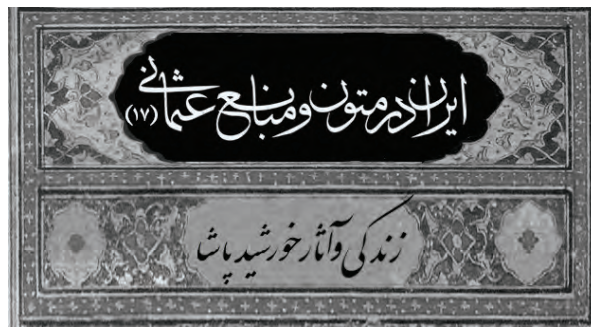 ایران در متون و منابع عثمانی (۱۷)
زندگی و آثار خورشید پاشا